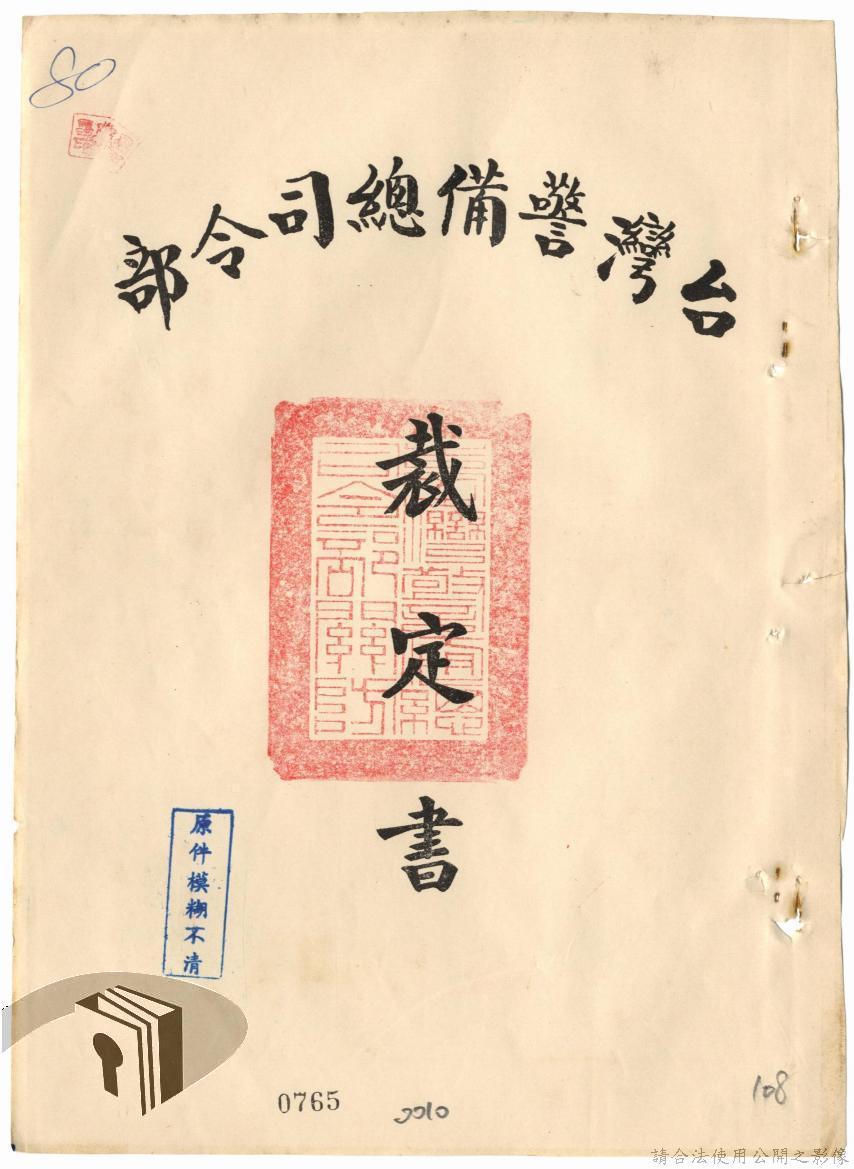 80
台灣警備總司令部
裁定書
原件模糊不清
0765
0010
108
請合法使用公開之影像